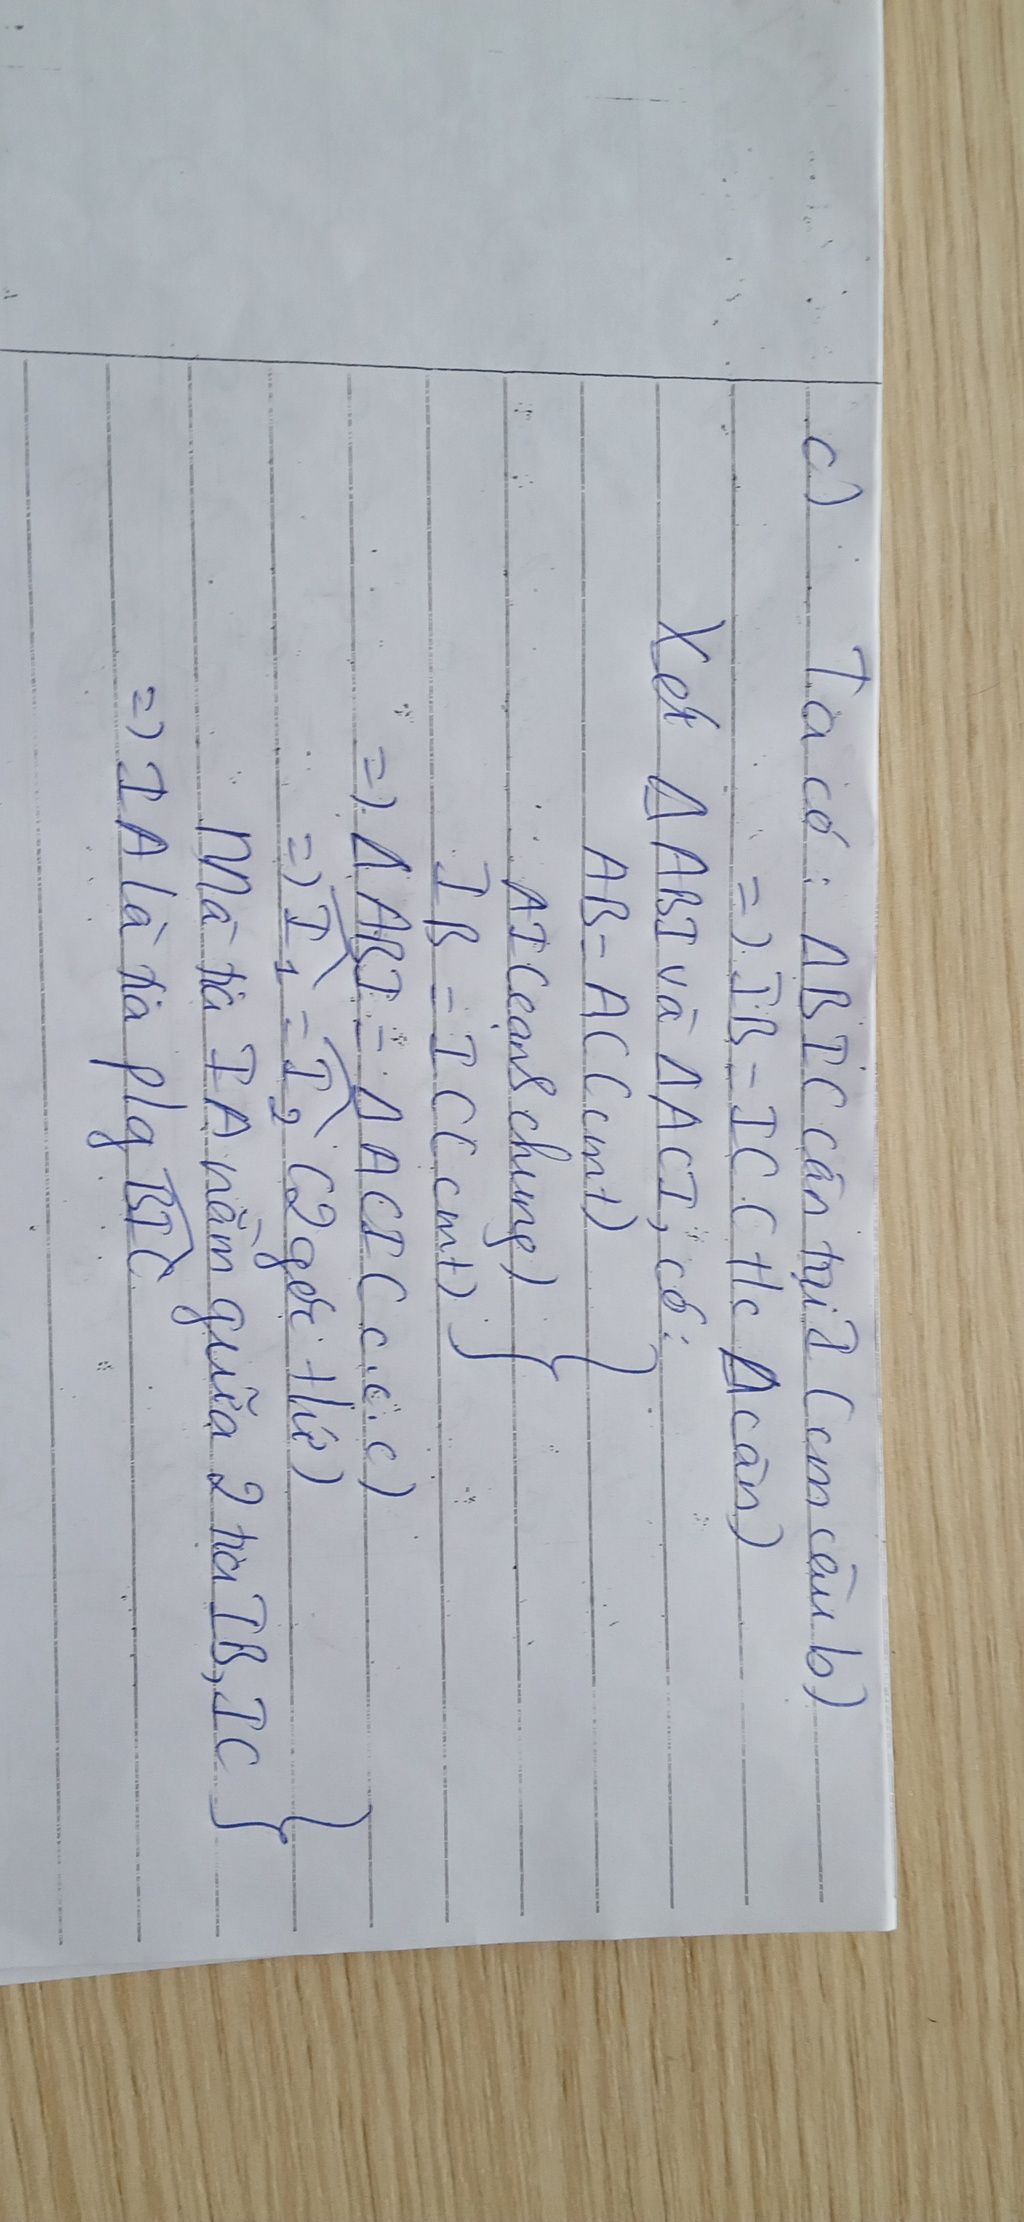 c) Ta có: ΔBIC cân tại I (cm câu b)
=> IB = IC (t/c Δ cân)
Xét ΔABI và ΔACI, có:
AB = AC (cmt)
AI (cạnh chung)
IB = IC (cmt) }
=> ΔABI = ΔACI (c.c.c)
=> Î₁ = Î₂ (2 góc t/ứ)
Mà tia IA nằm giữa 2 tia IB, IC }
=> IA là tia p/g B̂IC